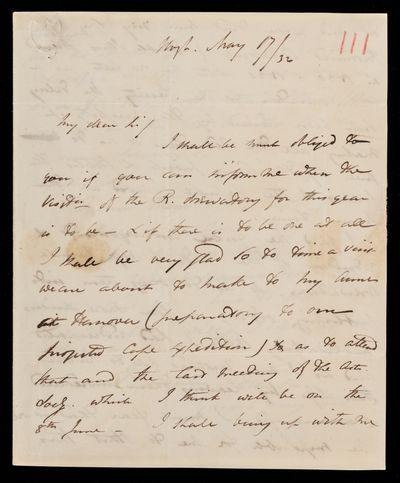 May 17/32
111
My dear Sir
I shall be much obliged to
you if you can inform me when the
Visit'n of the R. Observatory for this year
is to be — & if there is to be one at all
I shall be very glad so to time a visit
we are about to make to my Aunt
at Hanover (preparatory to our
projected Cape Expedition) as to attend
that and the last meeting of the Astr.
Socy. which I think will be on the
8th June — I shall bring up with me